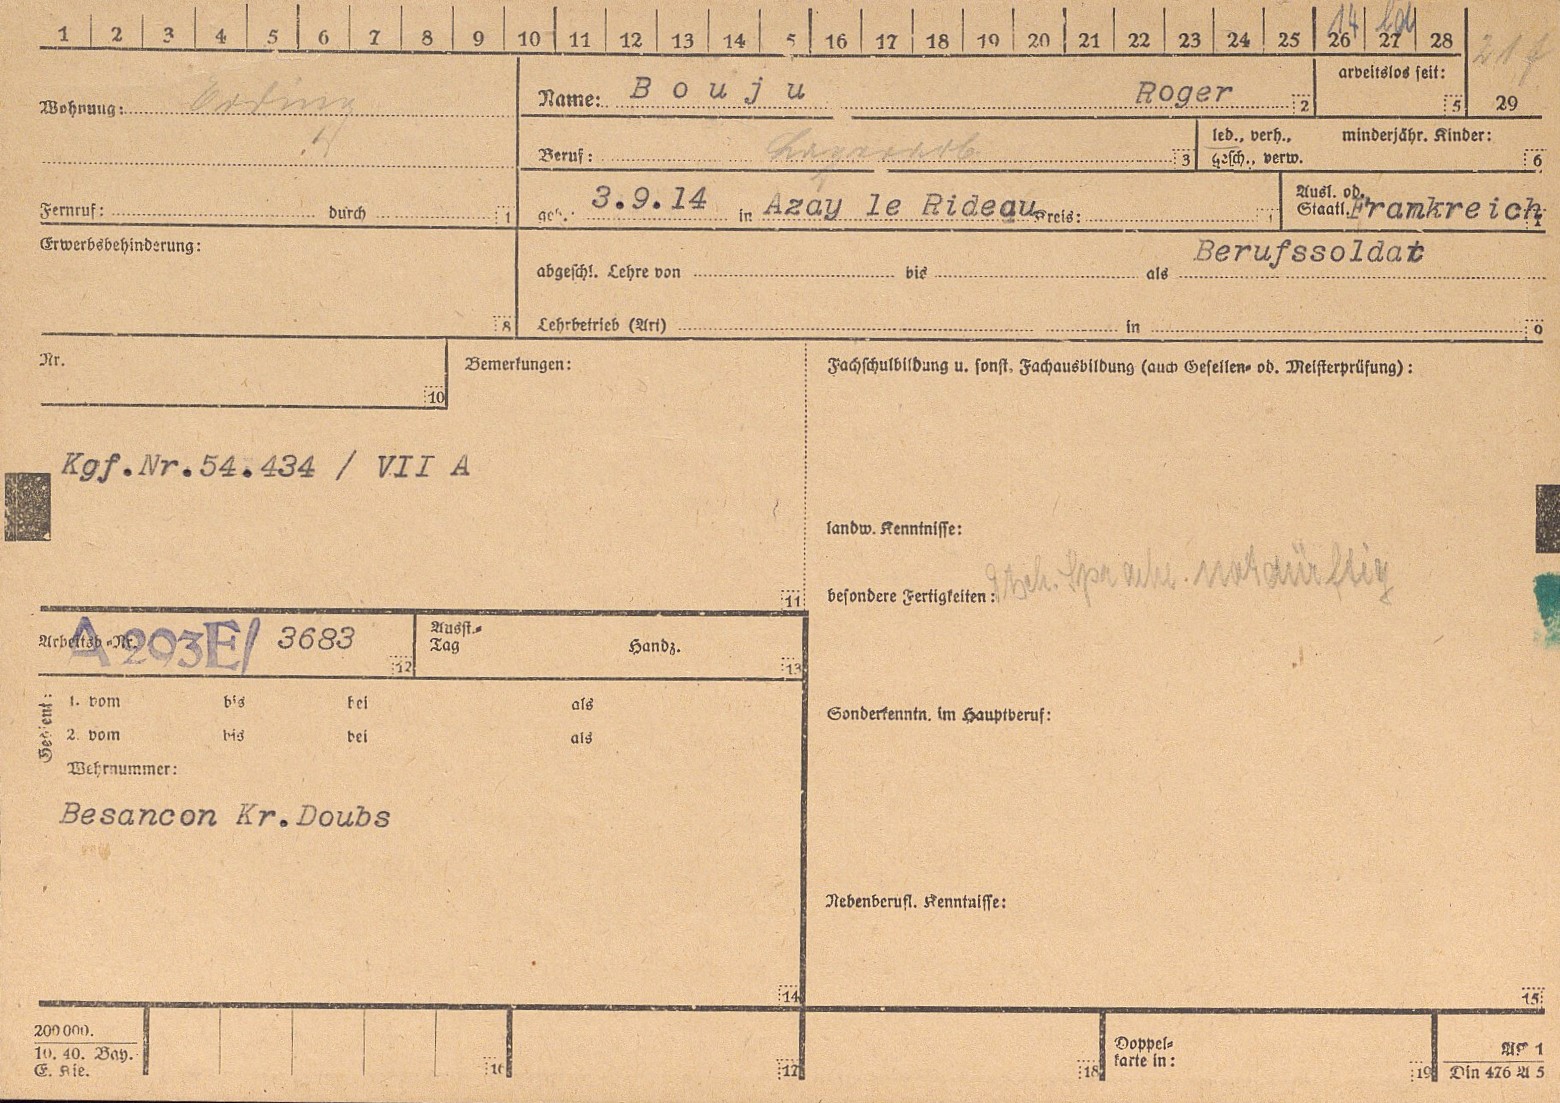 1 2 3 4 5 6 7 8 9 10 11 12 13 14 5 16 17 18 19 20 21 22 23 24 25 26 27 28
14
Wohnung: Erding
Name: Bouju Roger 2
arbeitslos seit: 5
29
Beruf: 3
led., verh., gesch., verw.
minderjähr. Kinder: 6
Fernruf: durch 1
geb. 3.9.14 in Azay le Rideau Kreis:
Ausl. od.
Staatl. Frankreich
Erwerbsbehinderung: 8
Berufssoldat
abgeschl. Lehre von bis als
Lehrbetrieb (Art) in 9
Nr. 10
Bemerkungen:
Kgf.Nr.54.434 / VII A
11
Fachschulbildung u. sonst. Fachausbildung (auch Gesellen- od. Meisterprüfung):
landw. Kenntnisse:
besondere Fertigkeiten: dtsch. Sprache. notdürftig
Sonderkenntn. im Hauptberuf:
Nebenberufl. Kenntnisse:
15
Arbeitsb.-Nr. A 293E/ 3683 12
Ausst.-
Tag Handz. 13
Gedient:
1. vom bis bei als
2. vom bis bei als
Wehrnummer:
Besancon Kr.Doubs
14
200 000.
10. 40. Bay.
E. Kie.
16
17
18
Doppel-
karte in:
19
AP 1
Din 476 A 5